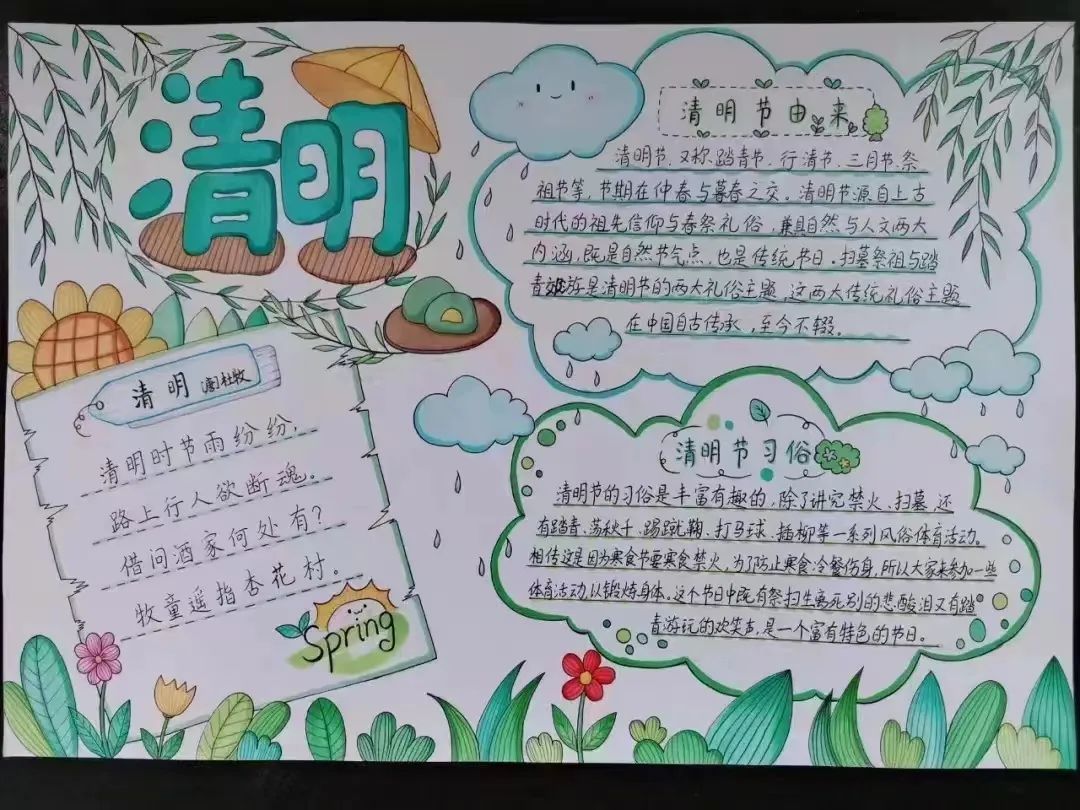 清明
清明节由来
清明节,又称踏青节、行清节、三月节、祭
祖节等,节期在仲春与暮春之交。清明节源自上古
时代的祖先信仰与春祭礼俗,兼具自然与人文两大
内涵,既是自然节气点,也是传统节日。扫墓祭祖与踏
青郊游是清明节的两大礼俗主题,这两大传统礼俗主题
在中国自古传承,至今不辍。
清明 (唐)杜牧
清明时节雨纷纷,
路上行人欲断魂。
借问酒家何处有?
牧童遥指杏花村。
Spring
清明节习俗
清明节的习俗是丰富有趣的,除了讲究禁火、扫墓,还
有踏青、荡秋千、踢蹴鞠、打马球、插柳等一系列风俗体育活动。
相传这是因为寒食节要寒食禁火,为了防止寒食冷餐伤身,所以大家来参加一些
体育活动,以锻炼身体。这个节日中既有祭扫生离死别的悲酸泪,又有踏
青游玩的欢笑声,是一个富有特色的节日。